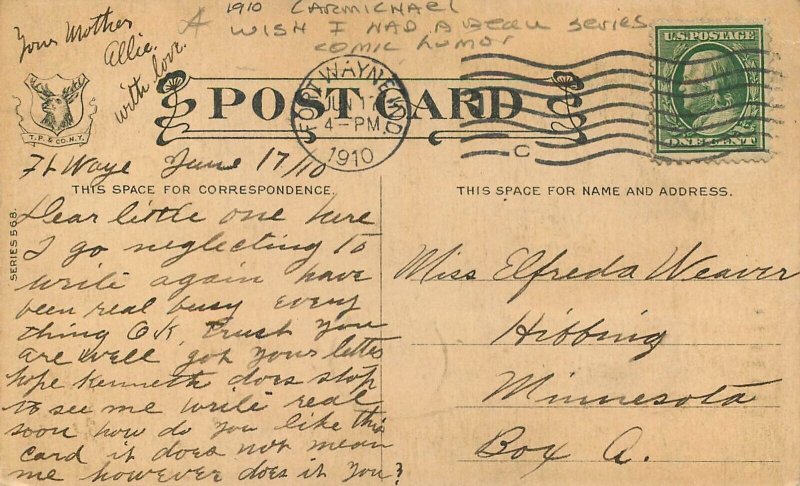 1910 CARMICHAEL
A WISH I HAD A BEAU series
comic humor
Your Mother
Allie.
with love.
T. P. & CO. N.Y.
POST CARD
FORT WAYNE, IND
JUN 17
4-PM
1910
C
U.S. POSTAGE
ONE CENT
Ft Waye June 17/10
THIS SPACE FOR CORRESPONDENCE.
THIS SPACE FOR NAME AND ADDRESS.
SERIES 568.
Dear little one here
I go neglecting to
write again have
been real busy every
thing OK, trust you
are well, got your letter
hope Kenneth does stop
to see me write real
soon how do you like this
card it does not mean
me however does it you?
Miss Elfreda Weaver
Hibbing
Minnesota
Box A.